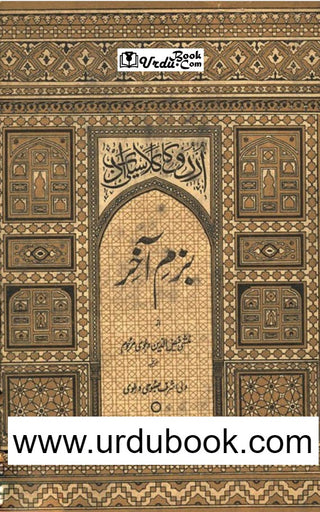 Urdu Book.Com
اُردو کا کلاسیکی ادب
بزمِ آخر
از
منشی فیض الدین دہلوی مرحوم
ولی اشرف صبوحی دہلوی
www.urdubook.com